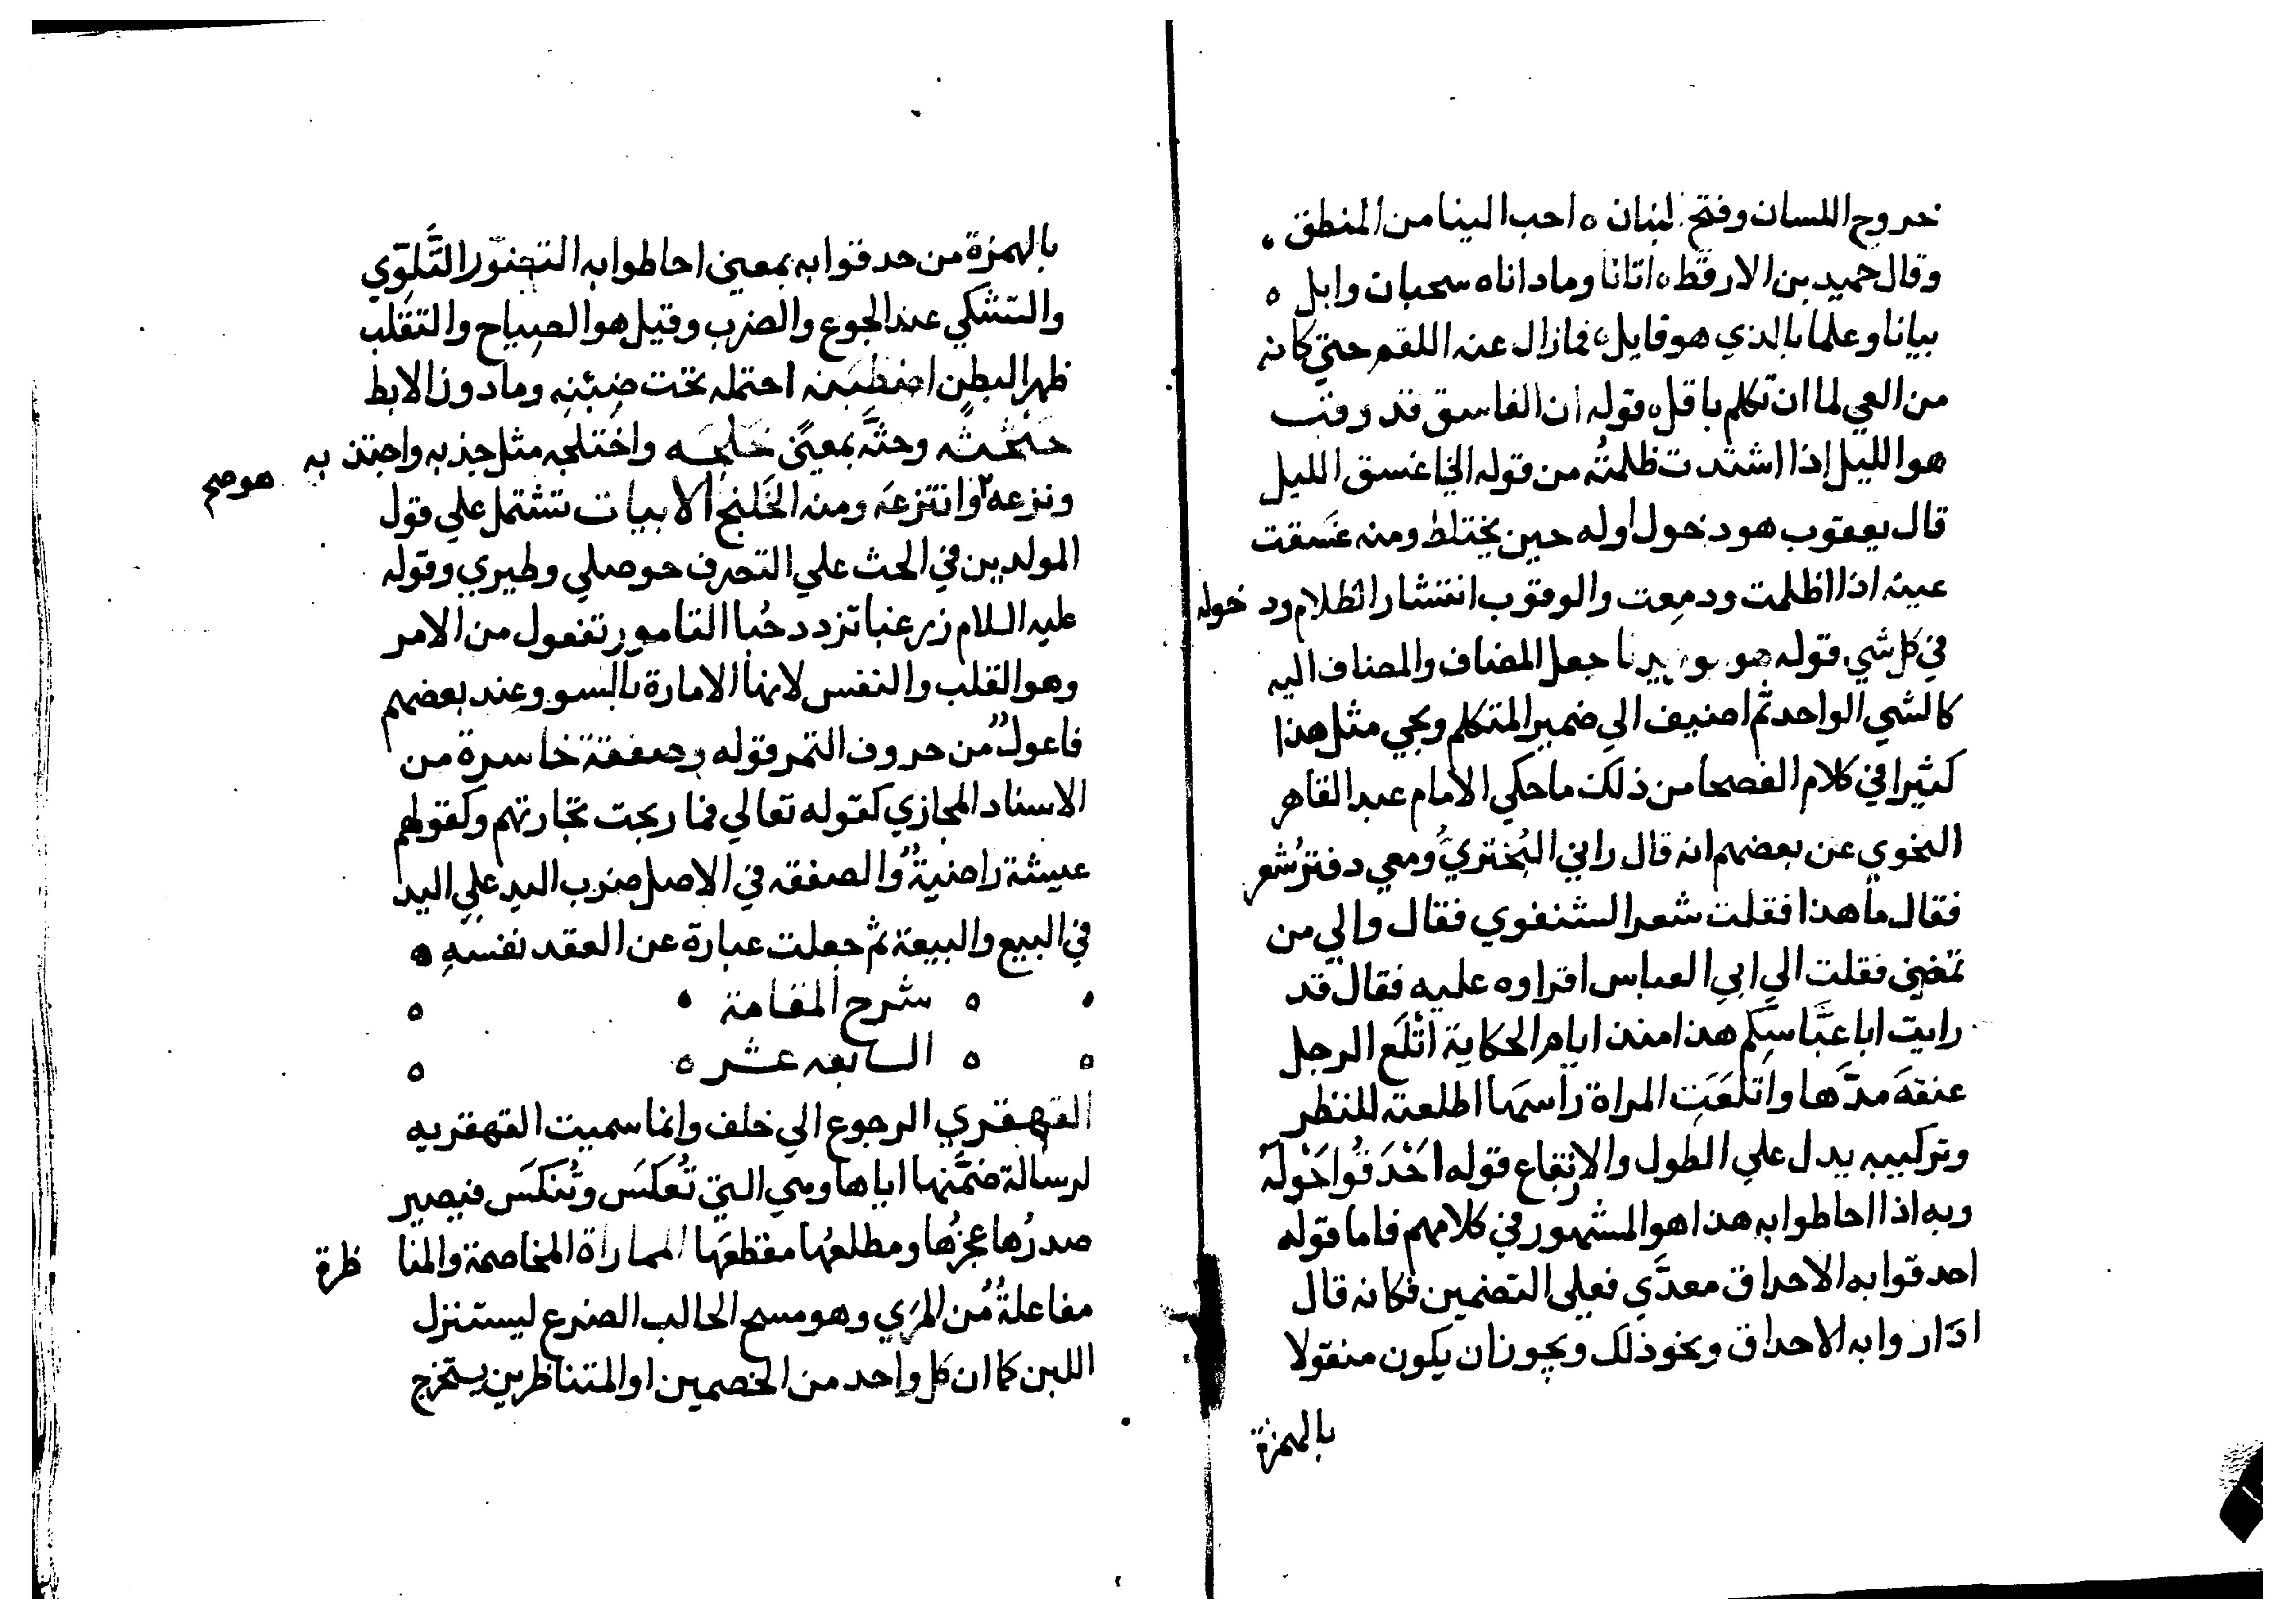 خروج اللسان وفتح البنان ه احب الينا من المنطق ،
وقال حميد بن الارقط ه اتانا وما داناه سحبان وابل ه
بيانا وعلما بالذي هو قايل ه فمازال عنه اللقم حتي كانه
من العي لما ان تكلم باقل ه قوله ان الغاسق قد وقب
هو الليل اذا اشتدت ظلمته من قوله الي غسق الليل
قال يعقوب هو دخول اوله حين يختلط ومنه غسقت
عينه اذا اظلمت ودمعت والوقوب انتشار الظلام ودخوله
في كل شي قوله جعل المضاف والمضاف اليه
كالشي الواحد ثم اضيف الي ضمير المتكلم ويجي مثل هذا
كثيرا في كلام الفصحا من ذلك ما حكي الامام عبد القاهر
النحوي عن بعضهم انه قال راني البحتري ومعي دفتر شعر
فقال ما هذا فقلت شعر الشنفوي فقال والي من
تمضي فقلت الي ابي العباس اقراوه عليه فقال قد
رايت ابا عَبَّاسِكم هذا منذ ايام الحكاية اتْلَع الرجل
عنقه مدَّها واَتلَعَتِ المراة راسها اطلعته للنظر
وتركيبه يدل علي الطول والارتفاع قوله اَحْدَقُوا حَوْلَهُ
وبه اذا احاطوا به هذا هو المشهور في كلامهم فاما قوله
احدقوا به الاحداق معدَّي فعلي التضمين فكانه قال
اداروا به الاحداق ونحو ذلك ويجوز ان يكون منقولا
بالهمزة
بالهمزة من حدقوا به بمعني احاطوا به التضوّر التَّلَوّي
والتشكي عند الجوع والضرب وقيل هو الصياح والتقلب
ظهر البطن اضطبنه احتمله تحت ضِبْنِه وما دون الابط
حَثْحَثَه وحثَّه بمعنًي خَلَجَه واختلجه مثل جذبه واجتذ به
ونزعه وانتزعه ومنه الخَلَنج الابيات تشتمل علي قول
هو صح
المولدين في الحث علي التصرف حوصلي وطيري وقوله
عليه السلام زر غبا تزدد حُبا التامور تفعول من الامر
وهو القلب والنفس لانها الامارة بالسو وعند بعضهم
فاعول من حروف التمر قوله وصفقة خاسرة من
الاسناد المجازي كقوله تعالي فما ربحت تجارتهم وكقولهم
عيشة راضية والصفقه في الاصل ضرب اليد علي اليد
في البيع والبيعة ثم جعلت عبارة عن العقد نفسه ه
شرح المقامة
السابعه عشر
القهقري الرجوع الي خلف وانما سميت القهقريه
لرسالة ضمَّنها اياها وهي التي تُعكَس وتُنكَس فيصير
صدرُها عجزُها ومطلعُها مقطعَها المماراة المخاصمة والمناظرة
مفاعلةٌ من المَرْي وهو مسح الحالب الضرع ليستنزل
اللبن كما ان كل واحد من الخصمين او المتناظرين يستخرج